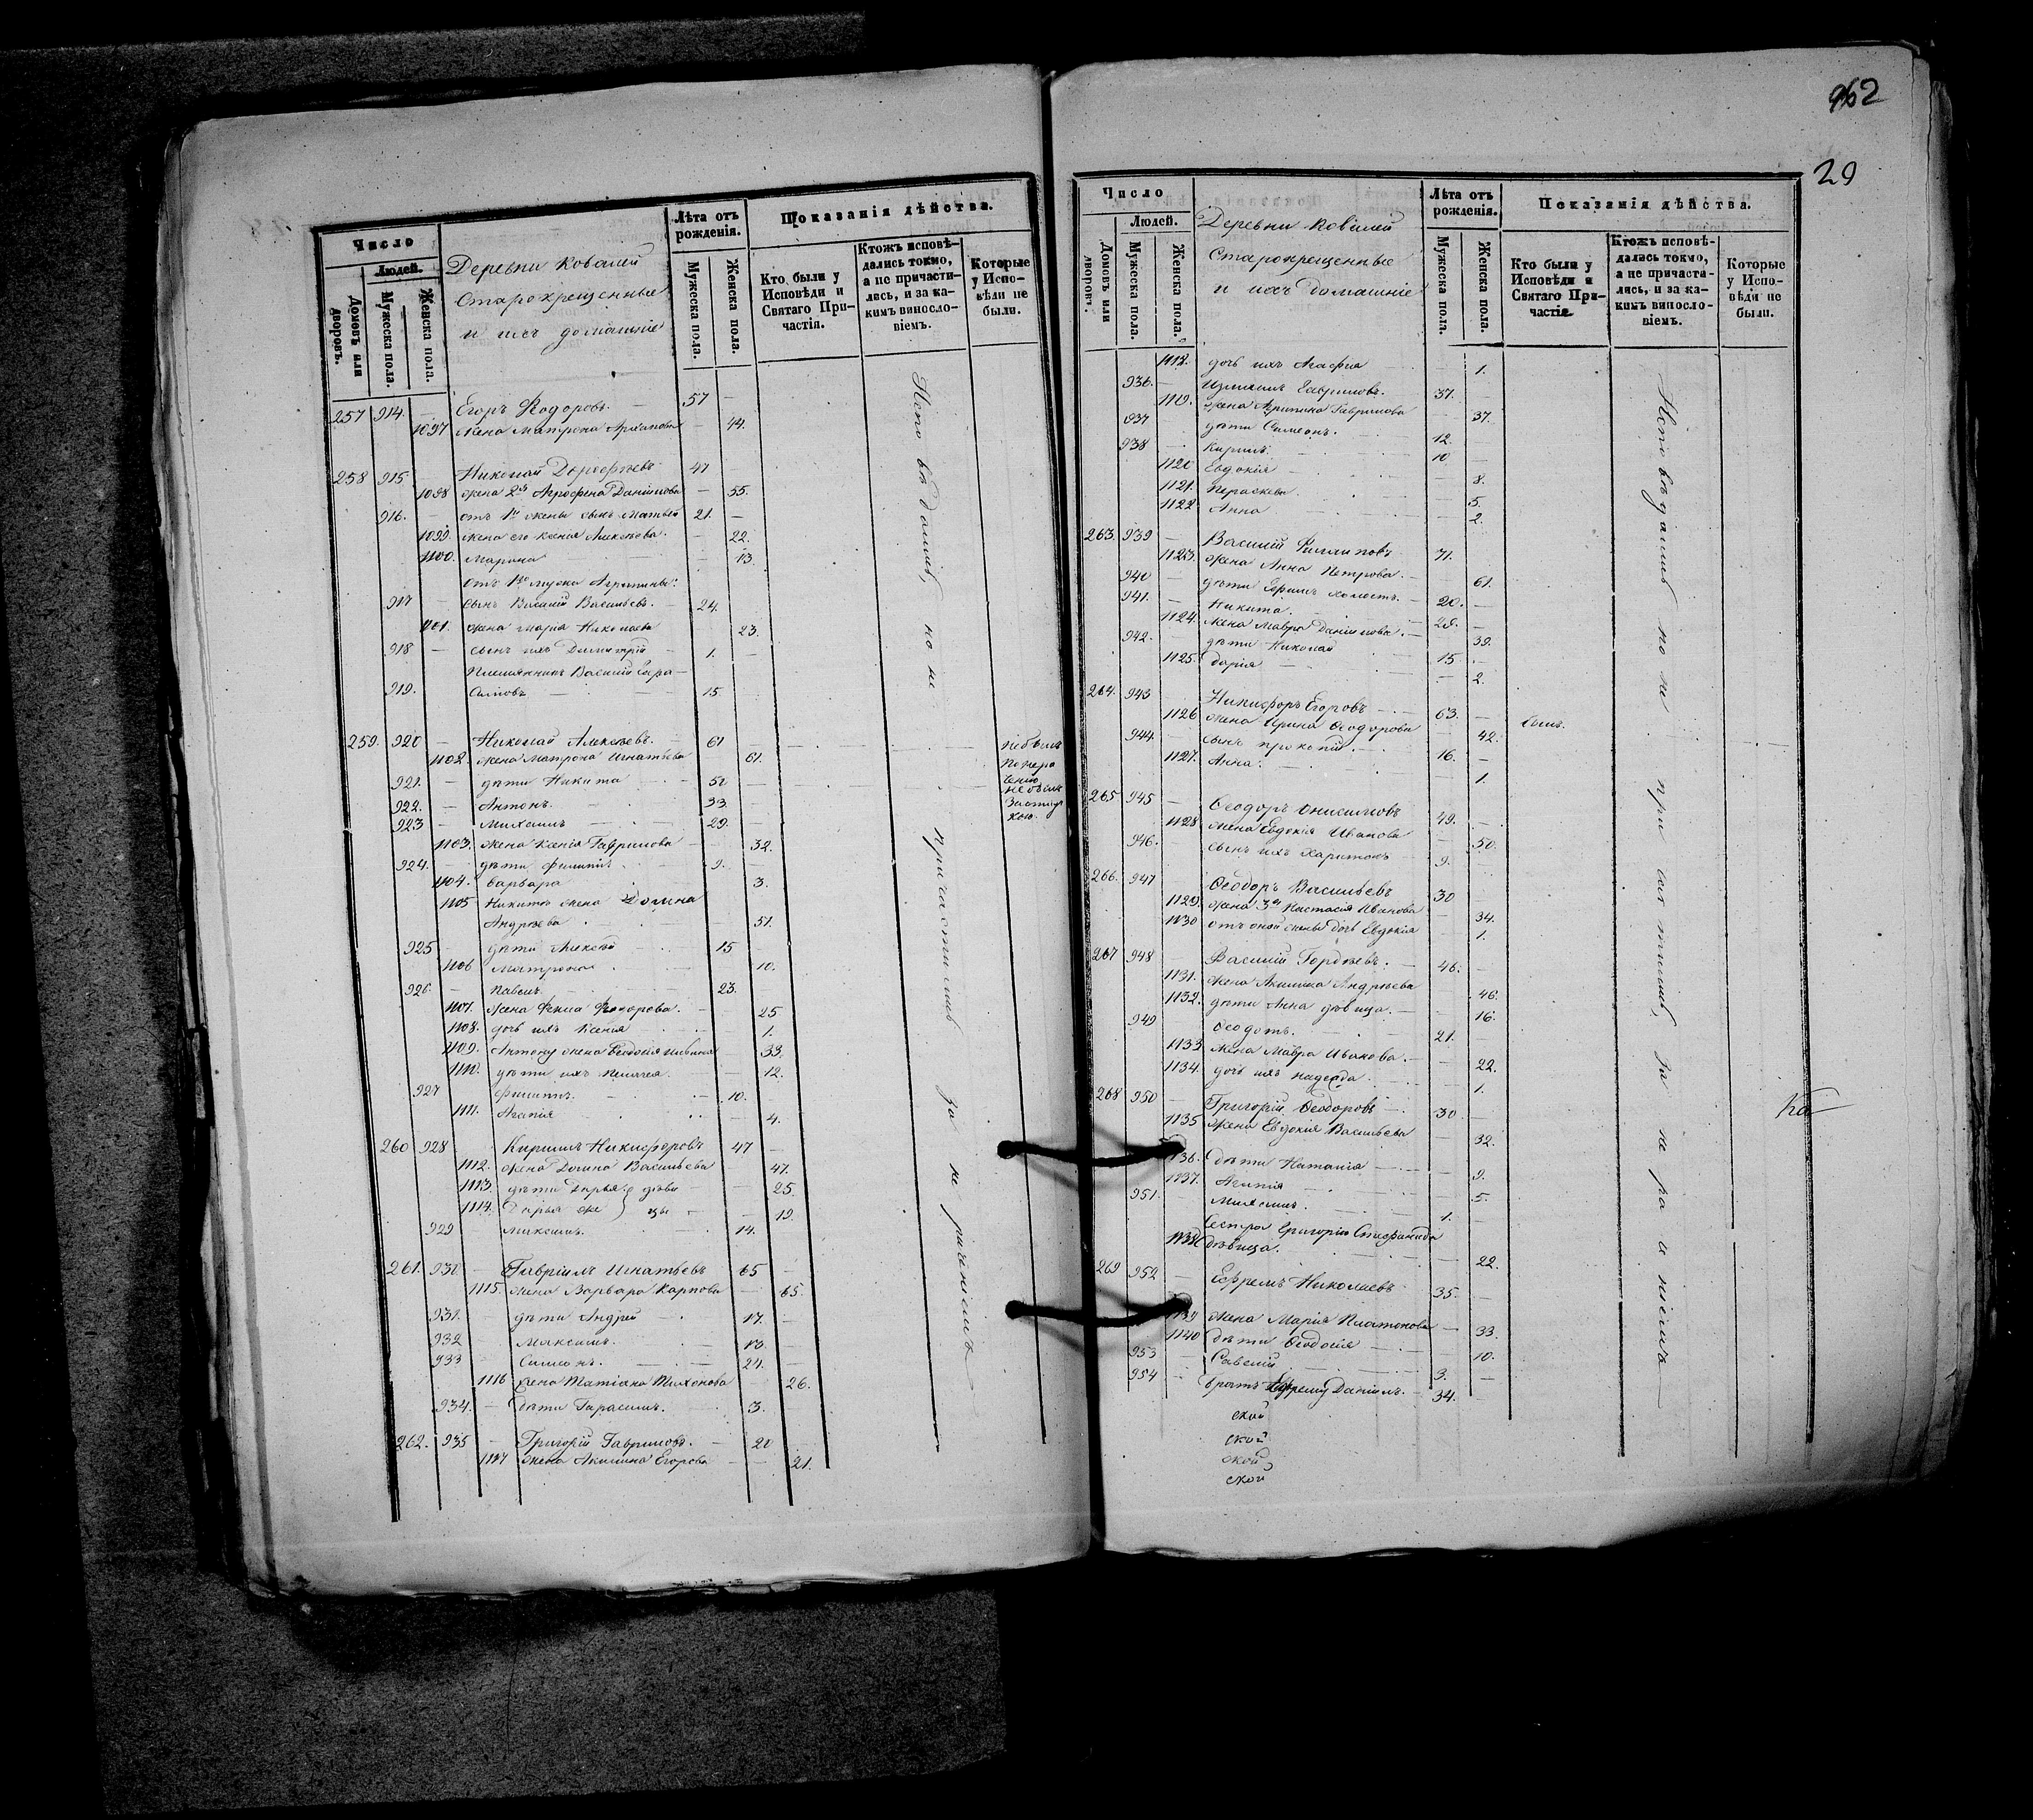 962
29
Число
Людей.
Домовъ или дворовъ.
Мужеска пола.
Женска пола.
Деревни Ковалей
Старокрещенные
и ихъ домашніе
Лѣта отъ рожденія.
Мужеска пола.
Женска пола.
Показанія дѣйства.
Кто были у Исповѣди и Святаго При-частія.
Ктожъ исповѣ-дались токмо, а не причасти-лись, и за ка-кимъ винослo-віемъ.
Которые у Испо-вѣди не были.
257 914. — Егоръ Ѳодоровъ. — 57 —
1097 жена Матрона — 44.
258 915. Николай Дороѳѣевъ 47
1098 жена 2я Агрофена Даніилова — 55.
916. — отъ 1й жены сынъ Матвѣй 21. —
1099. жена его Ксенія Алексѣева. — 22.
1100. Марина — 13.
отъ 1го мужа Агрипины.
917 — сынъ Василій Васильевъ. — 24.
1101. жена Марія Николаева 23.
918 — сынъ ихъ Димитрій — 1. —
Племянникъ Василій Гера-
919. симовъ — 15.
259. 920 — Николай Алексѣевъ. 61
1102 жена Матрона Игнатьева — 61.
921. — дѣти Никита — 50
922. — Антонъ. — 33.
923 — Михаилъ — 29.
1103. жена Ксенія Гаврилова — 32.
924. — дѣти Филиппъ — 9.
1104. Варвара 3.
1105 Никиты жена Домна
Андрѣева 51.
925 — дѣти Алексѣй 15 —
1106 Матрона 10.
926. — Павелъ. 23.
1107. жена Ѳекла Ѳодорова. — 25
1108. дочь ихъ Ксенія — 1.
1109. Антону жена Ѳеодосія 33.
1110. дѣти ихъ Пелагея. — 12.
927 Филиппъ. — 10. —
1111. Агапія — 4.
260 928 Кириллъ Никифоровъ 47 —
1112. жена Домна Васильева — 47.
1113. дѣти Дарья дѣви — 25.
1114. Дарья же } цы — 19.
929 — Максимъ. — 14. —
261. 930 — Гавріилъ Игнатьевъ 65 —
1115. жена Варвара Карпова — 65.
931. — дѣти Андрей — 17. —
932 Максимъ. — 13. —
933 — Симеонъ. — 24. —
1116 жена Татіана Тихонова 26.
934. — дѣти Герасимъ. — 3. —
262. 935 — Григорій Гавриловъ. — 20
1117 жена Акилина Егорова — 21.
небылъ
небылъ
Исповѣдались, но не причастились за не рачѣніемъ
Число
Людей.
Домовъ или дворовъ.
Мужеска пола.
Женска пола.
Деревни Ковалей
Старокрещенные
и ихъ домашніе
Лѣта отъ рожденія.
Мужеска пола.
Женска пола.
Показанія дѣйства.
Кто были у Исповѣди и Святаго При-частія.
Ктожъ исповѣ-дались токмо, а не причасти-лись, и за ка-кимъ винослo-віемъ.
Которые у Испо-вѣди не были.
1118. дочь ихъ Агафія — 1.
936. — Гавриловъ. 37. —
1119. жена Агрипина Гаврилова 37.
937 дѣти Симеонъ. — 12. —
938 — Кирилъ. 10 —
1120 Евдокія — 8.
1121. Параскева. 5.
1122 Анна — 2.
263. 939 — Василій Филиповъ 71.
1123. жена Анна Петрова. — 61.
940 — дѣти Ефимъ холостъ. — 20. —
941. — Никита. — 29. —
1124. жена Мавра Даніилова. — 39.
942. — дѣти Николай 15. —
1125. Дарія — 2.
264. 943 — Никифоръ Егоровъ — 63. —
1126 жена Ирина Ѳеодорова 42.
944 сынъ Прокопій. — 16. —
1127. Анна. — 1.
265 945 — Ѳеодоръ Онисимовъ 49. —
1128 жена Евдокія Иванова 50.
946. — сынъ ихъ Харитонъ 9.
266. 947 — Ѳеодоръ Васильевъ 30
1129. жена 3я Настасія Иванова 34.
1130 отъ оной жены дочь Евдокія 1.
267 948 — Василій Гордѣевъ. — 46. —
1131. жена Акилина Андрѣева 46.
1132. дѣти Анна дѣвица. — 16.
949 Ѳеодотъ. — 21. —
1133 жена Мавра Иванова. — 22.
1134. дочь ихъ Надежда. — 1.
268 950 — Григорій Ѳеодоровъ — 30 —
1135 жена Евдокія Васильева 32.
1136. дѣти Наталія — 9.
1137. Агапія — 5.
951. — Михаилъ. — 1. —
Сестра Григорію Стефанида
1138 дѣвица. 22.
269 952 — Ефремъ Николаевъ 35. —
1139 жена Марія Платонова — 33.
1140 дѣти Ѳеодосія — 10.
953 — Савелій — 3. —
954 — Братъ Ефрему Даніилъ. — 34.
ской
ской
ской
ской
Исповѣдались но не причастились, за не радѣніемъ